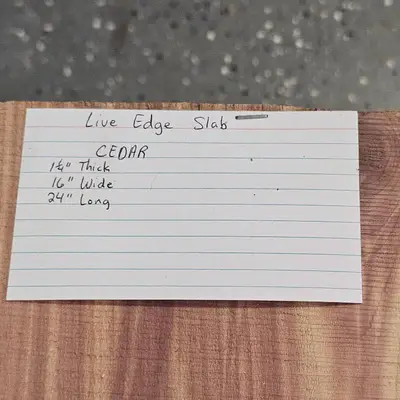 Live Edge Slab
CEDAR
1¼" Thick
16" Wide
24" Long